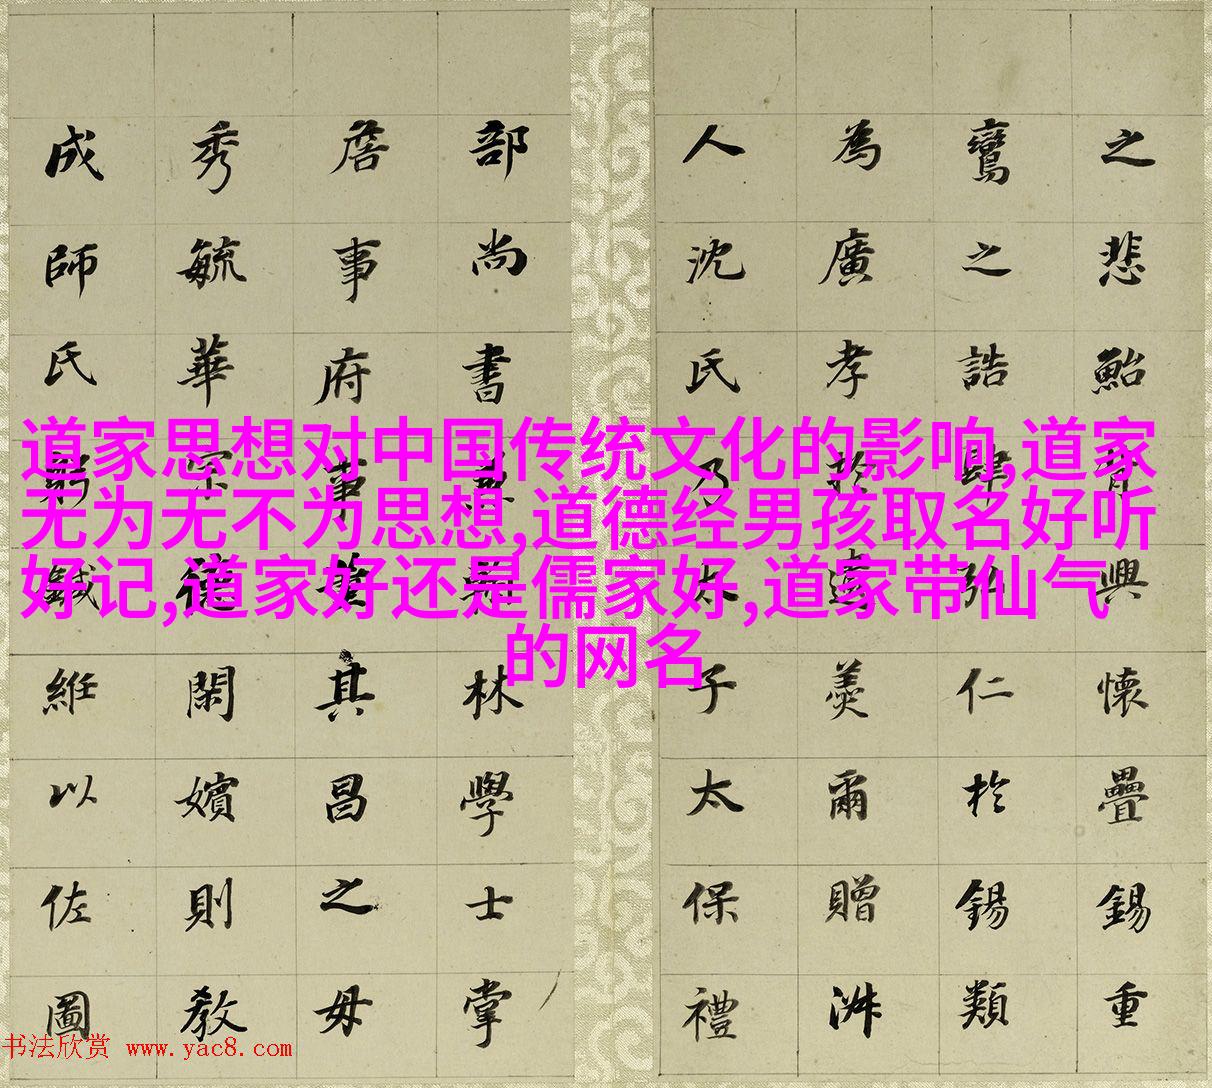 之悲鮐背興懷疊錫重
鸞之誥肆弘仁於錫類
為廣孝於爾贈淑
人沈氏乃太子太保禮
部尚書兼翰林學士掌
詹事府事董其昌之母
秀毓華宗德閑嬪則教
成師氏躬鍼絍以佐圖
道家思想对中国传统文化的影响,道家
无为无不为思想,道德经男孩取名好听
好记,道家好还是儒家好,道家带仙气
的网名
书法欣赏 www.yac8.com